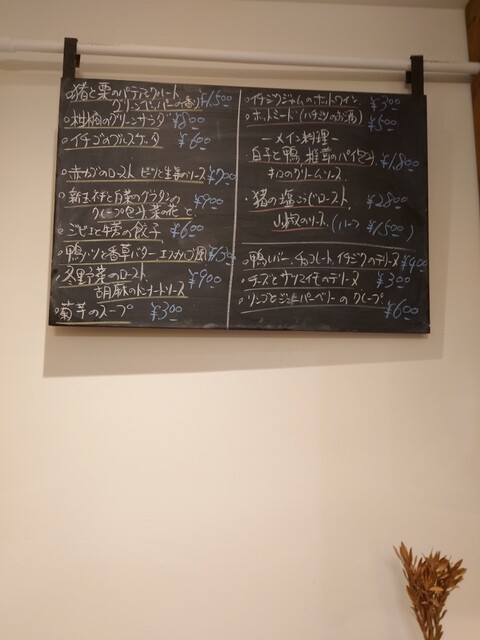 。猪と栗のパテアンクルート
グリーンペッパーの香り ¥1,500
。柑橘のグリーンサラダ ¥800
。イチゴのブルスケッタ ¥600
。赤カブのロースト ビーツと生姜のソース ¥700
。新玉ネギと白菜のグラタンの
クレープ包み 菜の花と ¥900
。ジビエと牛蒡の餃子 ¥600
。鴨ハツと香草バター エスカルゴ風
冬野菜のロースト
胡麻のトンナートソース ¥900
。菊芋のスープ ¥300
。イチジクジャムのホットワイン ¥300
。ホットミード(ハチミツのお酒) ¥500
ーメイン料理ー
。白子と鴨、椎茸のパイ包み
キノコのクリームソース ¥1,800
。猪の塩こうじロースト ¥2800
山椒のソース (ハーフ ¥1,500)
。鴨レバー、チョコレート、イチジクのテリーヌ ¥400
。チーズとサツマイモのテリーヌ ¥300
。リンゴとジュニパーベリーのクレープ
¥600